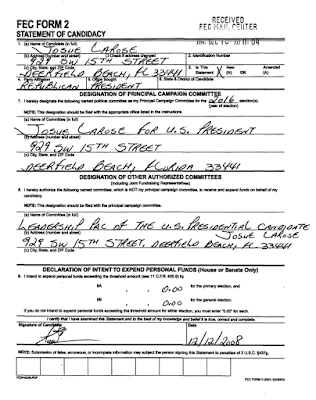 FEC FORM 2
STATEMENT OF CANDIDACY
RECEIVED
FEC MAIL CENTER
1. (a) Name of Candidate (in full)
Josue Larose
(b) Address (number and street)
Check if address changed
2. Identification Number
929 SW 15TH STREET
(c) City, State, and ZIP Code
3. Is This Statement
New (N) OR
Amended (A)
DEERFIELD BEACH, FL 33441
4. Party Affiliation
5. Office Sought
6. State & District of Candidate
REPUBLICAN
PRESIDENT
DESIGNATION OF PRINCIPAL CAMPAIGN COMMITTEE
7. I hereby designate the following named political committee as my Principal Campaign Committee for the 2016 election(s).
(year of election)
NOTE: This designation should be filed with the appropriate office listed in the instructions.
(a) Name of Committee (in full)
Josue Larose for U.S. President
(b) Address (number and street)
929 SW 15TH STREET
(c) City, State, and ZIP Code
DEERFIELD BEACH, FLORIDA 33441
DESIGNATION OF OTHER AUTHORIZED COMMITTEES
(Including Joint Fundraising Representatives)
8. I hereby authorize the following named committee, which is NOT my principal campaign committee, to receive and expend funds on behalf of my candidacy.
NOTE: This designation should be filed with the principal campaign committee.
(a) Name of Committee (in full)
LEADERSHIP PAC OF THE U.S. PRESIDENTIAL CANDIDATE
(b) Address (number and street)
JOSUE LAROSE
929 SW 15TH STREET, DEERFIELD BEACH, FL 33441
(c) City, State, and ZIP Code
DECLARATION OF INTENT TO EXPEND PERSONAL FUNDS (House or Senate Only)
9. I intend to expend personal funds exceeding the threshold amount (see 11 C.F.R. 400.9) by
9A
0.00
for the primary election, and
9B
0.00
for the general election.
If you do not intend to expend personal funds exceeding the threshold amount for either election, you must enter "0.00" for each.
I certify that I have examined this Statement and to the best of my knowledge and belief it is true, correct and complete.
Signature of Candidate
Date
12/12/2008
NOTE: Submission of false, erroneous, or incomplete information may subject the person signing this Statement to penalties of 2 U.S.C. §437g.